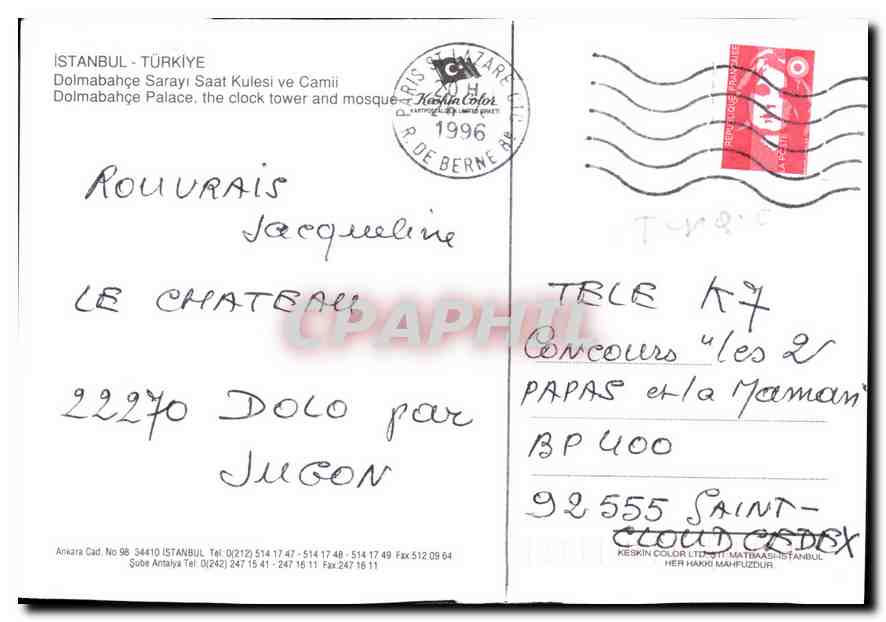 İSTANBUL - TÜRKİYE
Dolmabahçe Sarayı Saat Kulesi ve Camii
Dolmabahçe Palace, the clock tower and mosque
PARIS ST LAZARE
20 H
1996
R. DE BERNE 8e
Keskin Color
RÉPUBLIQUE FRANÇAISE
LA POSTE
ROUVRAIS
Jacqueline
LE CHATEAU
22270 DOLO par
JUGON
TELE K7
Concours "les 2
PAPAS et la Maman"
BP 400
92555 SAINT-
CLOUD CEDEX
CPAPHIL
Ankara Cad. No 98 34410 İSTANBUL Tel: 0(212) 514 17 47 - 514 17 48 - 514 17 49 Fax: 512 09 64
Şube Antalya Tel: 0(242) 247 15 41 - 247 16 11 Fax 247 16 11
KESKİN COLOR LTD. ŞTİ. MATBAASI-İSTANBUL
HER HAKKI MAHFUZDUR